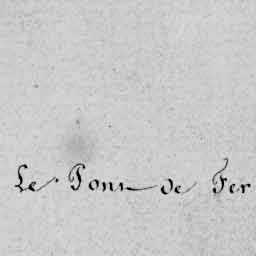 Le Pont de Fer